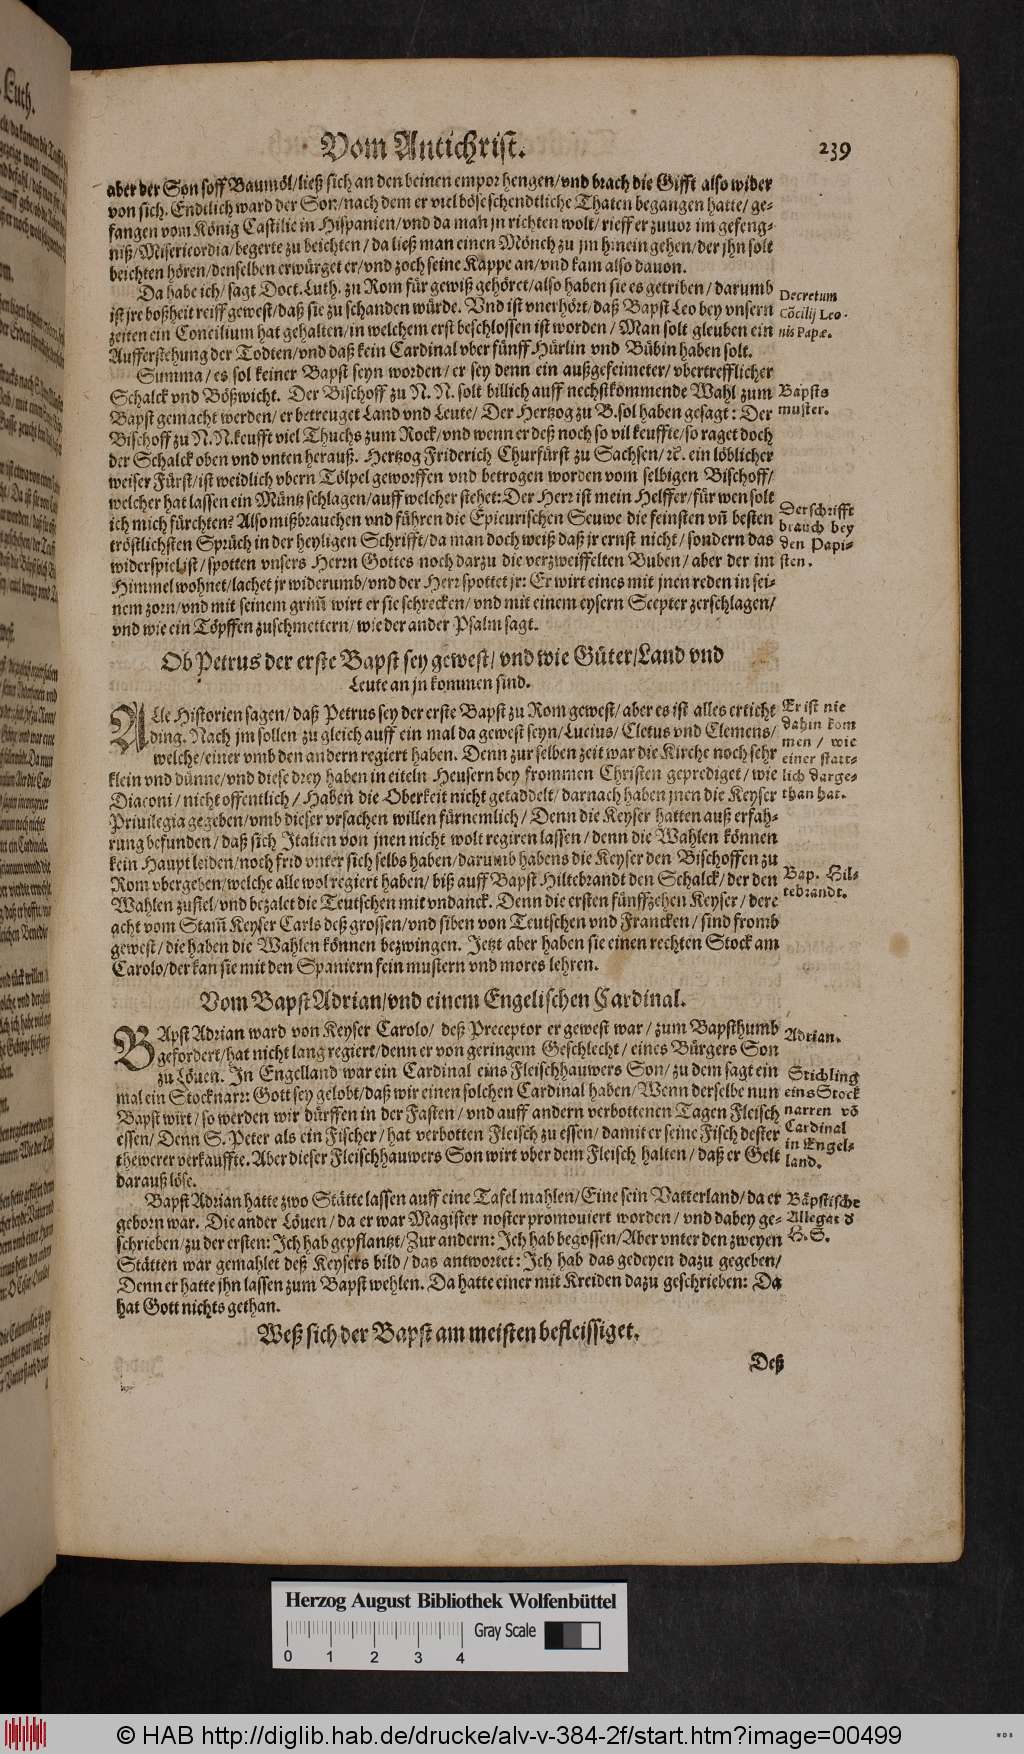 Vom Antichrist. 239
aber der Son soff Baumöl/ließ sich an den beinen empor hengen/vnd brach die Gifft also wider
von sich. Endtlich ward der Son/nach dem er viel böse schendtliche Thaten begangen hatte/ ge-
fangen vom König Castilie in Hispanien/vnd da man jn richten wolt/rieff er zuuor im gefeng-
niß/Misericordia/begerte zu beichten/da ließ man einen Mönch zu jm hinein gehen/der jhn solt
beichten hören/denselben erwürget er/vnd zoch seine Kappe an/vnd kam also dauon.
Da habe ich/ sagt Doct. Luth. zu Rom für gewiß gehöret/also haben sie es getriben/ darumb
ist jre boßheit reiff gewest/daß sie zu schanden würde. Vnd ist vnerhört/daß Bapst Leo bey vnsern
zeiten ein Concilium hat gehalten/in welchem erst beschlossen ist worden/ Man solt gleuben ein
Aufferstehung der Todten/vnd daß kein Cardinal vber fünff Hürlin vnd Bübin haben solt.
Decretum
Cōcilij Leo-
nis Papæ.
Summa/es sol keiner Bapst seyn worden/ er sey denn ein außgefeimeter/ vbertrefflicher
Schalck vnd Bößwicht. Der Bischoff zu N. N. solt billich auff nechstkömmende Wahl zum
Bapst gemacht werden/er betreuget Land vnd Leute/ Der Hertzog zu B. sol haben gesagt: Der
Bischoff zu N. N. keufft viel Thuchs zum Rock/vnd wenn er deß noch so vil keuffte/so raget doch
der Schalck oben vnd vnten herauß. Hertzog Friderich Churfürst zu Sachsen/ ꝛc. ein löblicher
weiser Fürst/ist weidlich vbern Tölpel geworffen vnd betrogen worden vom selbigen Bischoff/
welcher hat lassen ein Müntz schlagen/auff welcher stehet: Der Herr ist mein Helffer/für wen solt
ich mich fürchten? Also mißbrauchen vnd führen die Epicurischen Seuwe die feinsten vñ besten
tröstlichsten Sprüch in der heyligen Schrifft/da man doch weiß daß jr ernst nicht/ sondern das
widerspiel ist/spotten vnsers Herrn Gottes noch darzu die verzweiffelten Buben/ aber der im
Himmel wohnet/lachet jr widerumb/vnd der Herr spottet jr: Er wirt eines mit jnen reden in sei-
nem zorn/vnd mit seinem grim̃ wirt er sie schrecken/ vnd mit einem eysern Scepter zerschlagen/
vnd wie ein Töpffen zuschmettern/ wie der ander Psalm sagt.
Bapsts
muster.
Der schrifft
brauch bey
den Papi-
sten.
Ob Petrus der erste Bapst sey gewest/ vnd wie Güter/Land vnd
Leute an jn kommen sind.
ALle Historien sagen/ daß Petrus sey der erste Bapst zu Rom gewest/ aber es ist alles erticht
ding. Nach jm sollen zu gleich auff ein mal da gewest seyn/Lucius/ Cletus vnd Clemens/
welche/einer vmb den andern regiert haben. Denn zur selben zeit war die Kirche noch sehr
klein vnd dünne/vnd diese drey haben in eiteln Heusern bey frommen Christen geprediget/ wie
Diaconi/ nicht offentlich/ Haben die Oberkeit nicht getaddelt/darnach haben jnen die Keyser
Priuilegia gegeben/vmb dieser vrsachen willen fürnemlich/ Denn die Keyser hatten auß erfah-
rung befunden/ daß sich Italien von jnen nicht wolt regiren lassen/ denn die Wahlen können
kein Haupt leiden/noch frid vnter sich selbs haben/darumb habens die Keyser den Bischoffen zu
Rom vbergeben/welche alle wol regiert haben/ biß auff Bapst Hiltebrandt den Schalck/der den
Wahlen zufiel/vnd bezalet die Teutschen mit vndanck. Denn die ersten fünffzehen Keyser/ dere
acht vom Stam̃ Keyser Carls deß grossen/vnd siben von Teutschen vnd Francken/ sind fromb
gewest/die haben die Wahlen können bezwingen. Jetzt aber haben sie einen rechten Stock am
Carolo/der kan sie mit den Spaniern fein mustern vnd mores lehren.
Er ist nie
dahin kom
men/ wie
einer statt-
lich darge-
than hat.
Bap. Hil-
tebrandt.
Vom Bapst Adrian/vnd einem Engelischen Cardinal.
BApst Adrian ward von Keyser Carolo/ deß Preceptor er gewest war/ zum Bapsthumb
gefordert/hat nicht lang regiert/denn er von geringem Geschlecht/ eines Bürgers Son
zu Löuen. In Engelland war ein Cardinal eins Fleischhauwers Son/zu dem sagt ein
mal ein Stocknarr: Gott sey gelobt/daß wir einen solchen Cardinal haben/Wenn derselbe nun
Bapst wirt/so werden wir dürffen in der Fasten/ vnd auff andern verbottenen Tagen Fleisch
essen/ Denn S. Peter als ein Fischer/ hat verbotten Fleisch zu essen/ damit er seine Fisch dester
thewerer verkauffte. Aber dieser Fleischhauwers Son wirt vber dem Fleisch halten/ daß er Gelt
darauß löse.
Adrian.
Stichling
eins Stock
narren võ
Cardinal
in Engel-
land.
Bapst Adrian hatte zwo Stätte lassen auff eine Tafel mahlen/Eine sein Vatterland/da er
geborn war. Die ander Löuen/ da er war Magister noster promouiert worden/ vnd dabey ge-
schrieben/zu der ersten: Ich hab gepflantzt/Zur andern: Ich hab begossen/Aber vnter den zweyen
Stätten war gemahlet deß Keysers bild/das antwortet: Ich hab das gedeyen dazu gegeben/
Denn er hatte jhn lassen zum Bapst wehlen. Da hatte einer mit Kreiden dazu geschrieben: Da
hat Gott nichts gethan.
Bäpstische
Allegat d
H. S.
Weß sich der Bapst am meisten befleissiget.
Deß
Herzog August Bibliothek Wolfenbüttel
0 1 2 3 4
Gray Scale
© HAB http://diglib.hab.de/drucke/alv-v-384-2f/start.htm?image=00499